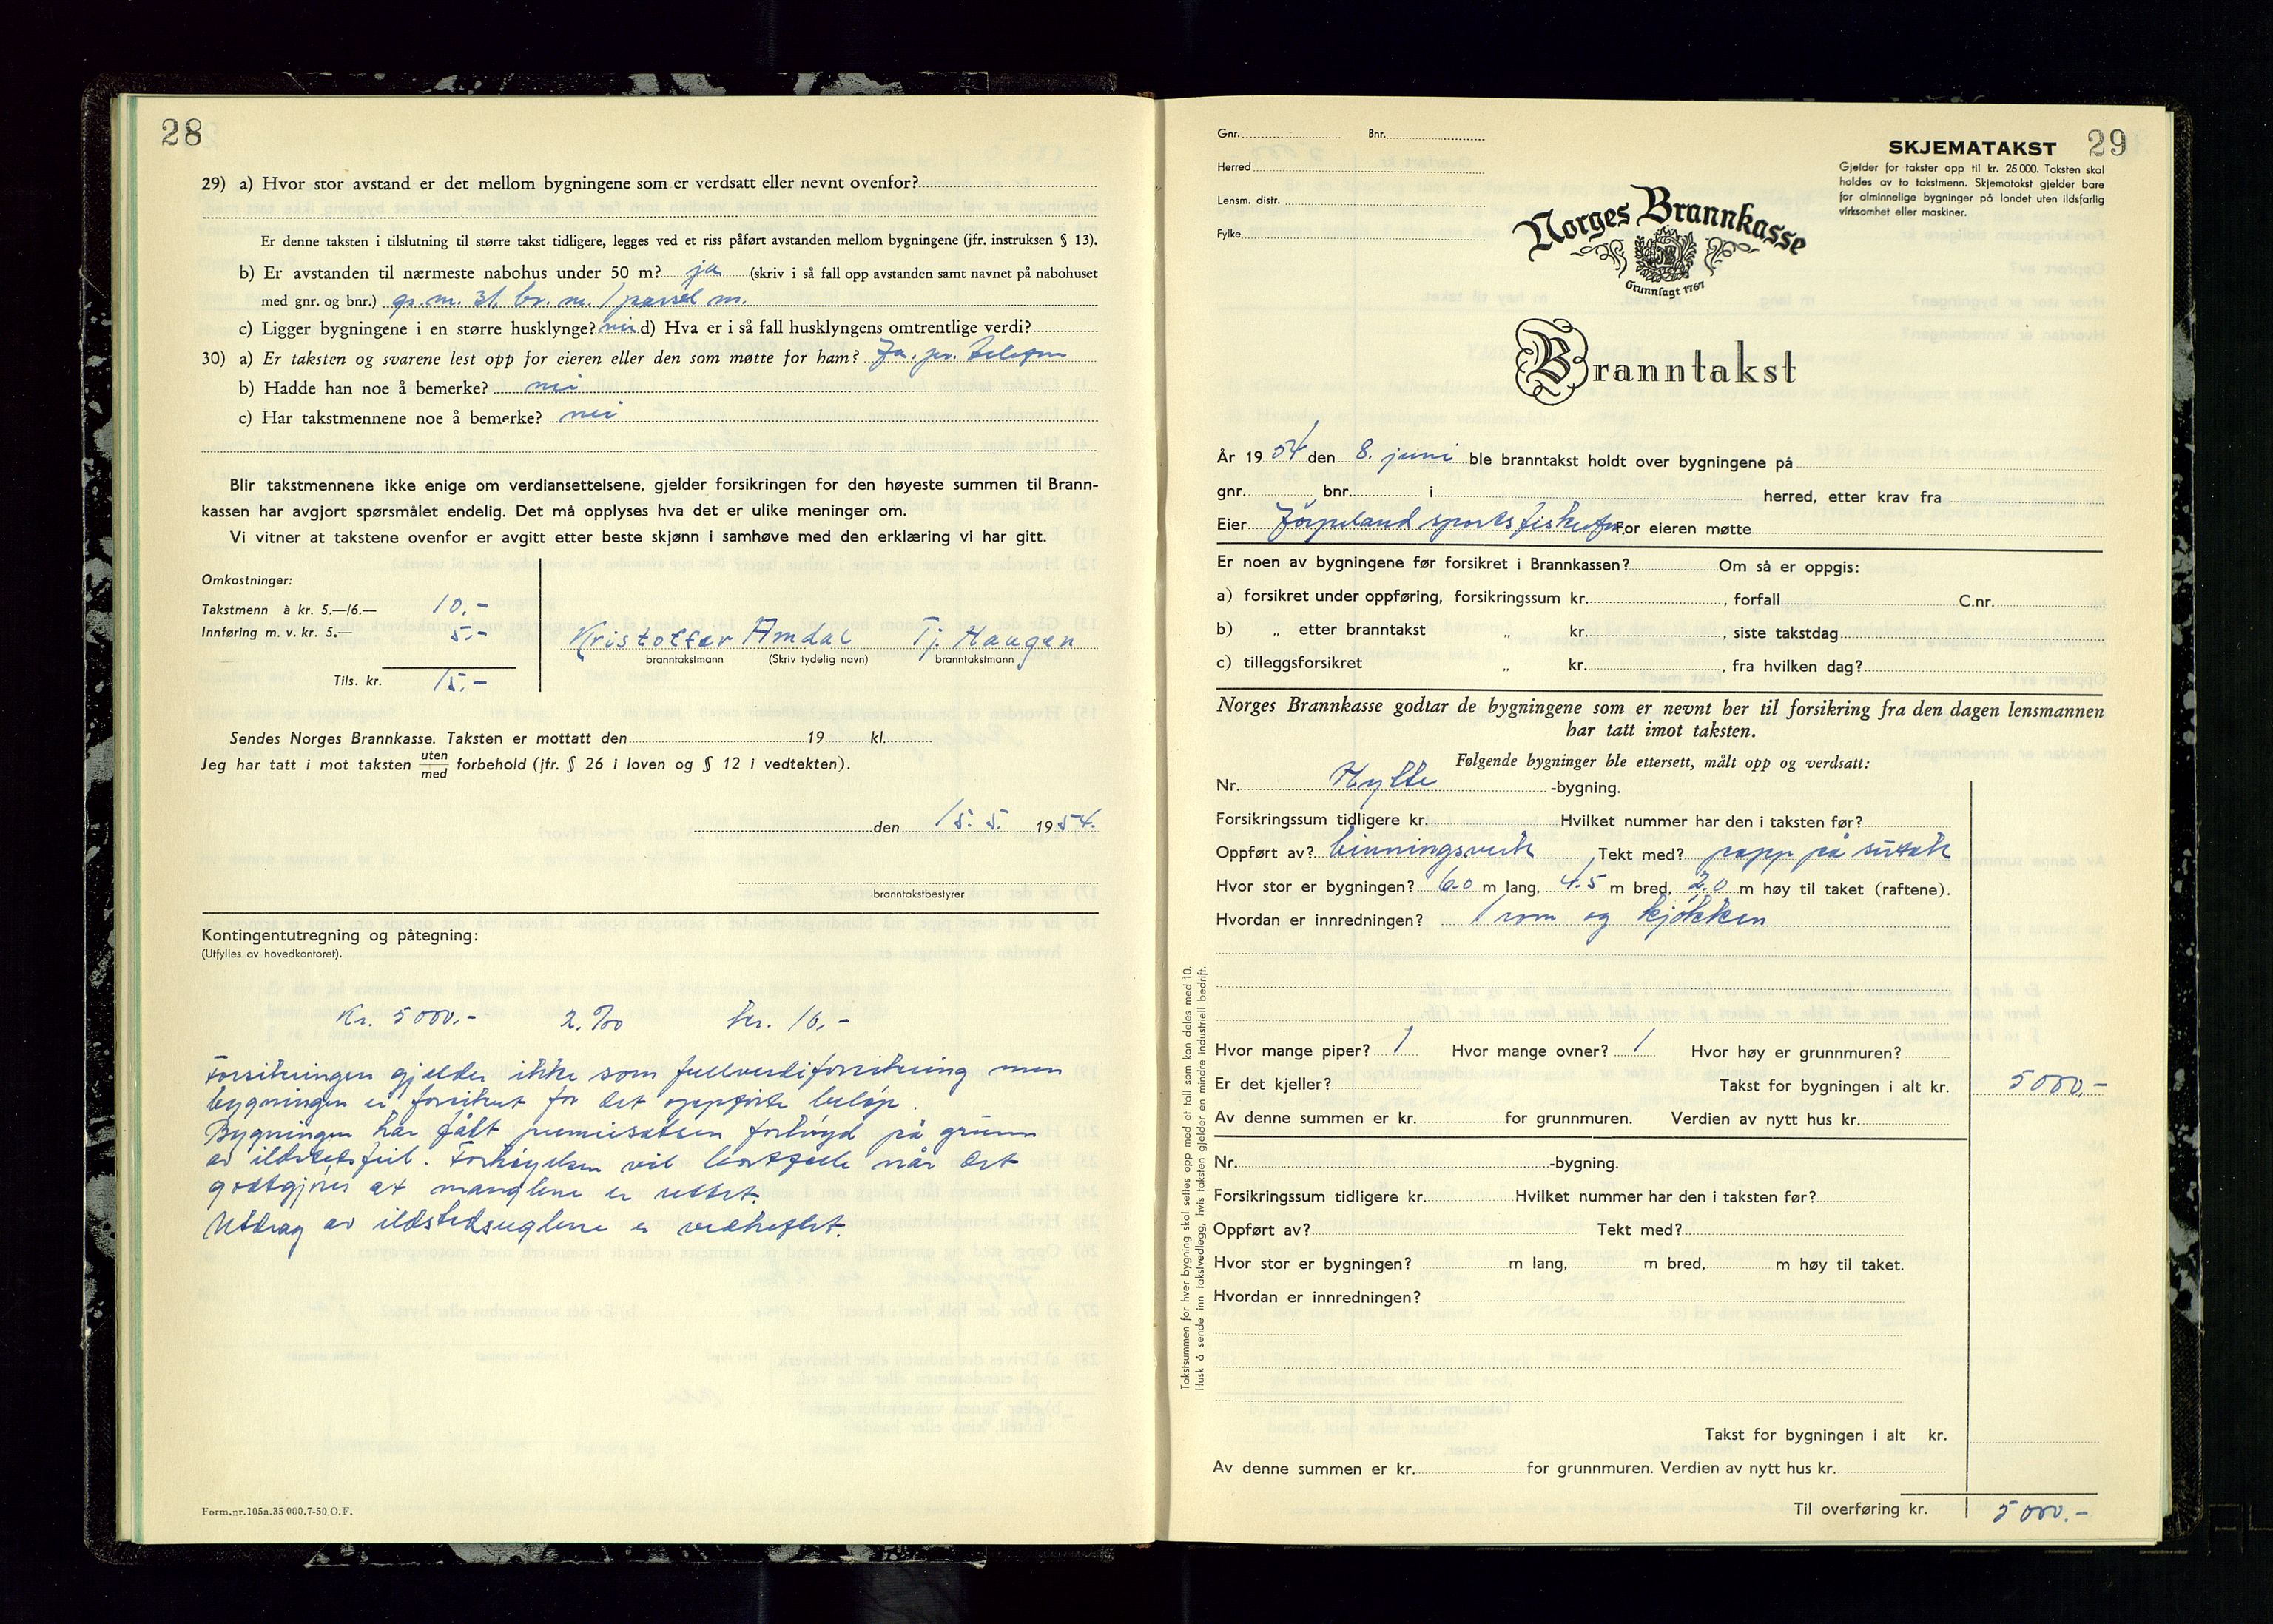 28
29) a) Hvor stor avstand er det mellom bygningene som er verdsatt eller nevnt ovenfor?
Er denne taksten i tilslutning til større takst tidligere, legges ved et riss påført avstanden mellom bygningene (jfr. instruksen § 13).
b) Er avstanden til nærmeste nabohus under 50 m? ja (skriv i så fall opp avstanden samt navnet på nabohuset
med gnr. og bnr.) gr. nr. 31, br. nr. 1 parsel nr.
c) Ligger bygningene i en større husklynge? nei d) Hva er i så fall husklyngens omtrentlige verdi?
30) a) Er taksten og svarene lest opp for eieren eller den som møtte for ham? Ja. pr. telefon
b) Hadde han noe å bemerke? nei
c) Har takstmennene noe å bemerke? nei
Blir takstmennene ikke enige om verdiansettelsene, gjelder forsikringen for den høyeste summen til Brann-
kassen har avgjort spørsmålet endelig. Det må opplyses hva det er ulike meninger om.
Vi vitner at takstene ovenfor er avgitt etter beste skjønn i samhøve med den erklæring vi har gitt.
Omkostninger:
Takstmenn à kr. 5.—/6.— 10.-
Innføring m. v. kr. 5.— 5.-
Kristoffer Amdal Tj. Haugen
branntakstmann (Skriv tydelig navn) branntakstmann
Tils. kr. 15.-
Sendes Norges Brannkasse. Taksten er mottatt den 19 kl.
Jeg har tatt i mot taksten uten/med forbehold (jfr. § 26 i loven og § 12 i vedtekten).
den 15. 5. 1954.
branntakstbestyrer
Kontingentutregning og påtegning:
(Utfylles av hovedkontoret).
Kr. 5000.- 2.‰ kr. 10,-
Forsikringen gjelder ikke som fullverdiforsikring men
bygningen er forsikret for det oppførte beløp.
Bygningen har fått premiesatsen forhøyd på grunn
av ildstedsfeil. Forhøyelsen vil bortfalle når det
godtgjøres at manglene er rettet.
Utdrag av ildstedsreglene er vedheftet.
Form.nr.105a.35 000.7-50.O.F.
29
Gnr. Bnr.
Herred
Lensm. distr.
Fylke
SKJEMATAKST
Gjelder for takster opp til kr. 25 000. Taksten skal
holdes av to takstmenn. Skjematakst gjelder bare
for alminnelige bygninger på landet uten ildsfarlig
virksomhet eller maskiner.
Norges Brannkasse
Grunnlagt 1767
Branntakst
År 1954 den 8. juni ble branntakst holdt over bygningene på
gnr. bnr. i herred, etter krav fra
Eier Jørpeland sportsfiskefor. For eieren møtte
Er noen av bygningene før forsikret i Brannkassen? Om så er oppgis:
a) forsikret under oppføring, forsikringssum kr. , forfall C.nr.
b) „ etter branntakst „ kr. , siste takstdag
c) tilleggsforsikret „ kr. , fra hvilken dag?
Norges Brannkasse godtar de bygningene som er nevnt her til forsikring fra den dagen lensmannen
har tatt imot taksten.
Følgende bygninger ble ettersett, målt opp og verdsatt:
Nr. Hytte -bygning.
Forsikringssum tidligere kr. Hvilket nummer har den i taksten før?
Oppført av? binningsverk Tekt med? papp på sutak
Hvor stor er bygningen? 6.0 m lang, 4.5 m bred, 2.0 m høy til taket (raftene).
Hvordan er innredningen? 1 rom og kjøkken
Hvor mange piper? 1 Hvor mange ovner? 1 Hvor høy er grunnmuren?
Er det kjeller? Takst for bygningen i alt kr. 5000,-
Av denne summen er kr. for grunnmuren. Verdien av nytt hus kr.
Nr. -bygning.
Forsikringssum tidligere kr. Hvilket nummer har den i taksten før?
Oppført av? Tekt med?
Hvor stor er bygningen? m lang, m bred, m høy til taket.
Hvordan er innredningen?
Takst for bygningen i alt kr.
Av denne summen er kr. for grunnmuren. Verdien av nytt hus kr.
Til overføring kr. 5000.-
Takstsummen for hver bygning skal settes opp med et tall som kan deles med 10.
Husk å sende inn takstvedlegg, hvis taksten gjelder en mindre industriell bedrift.